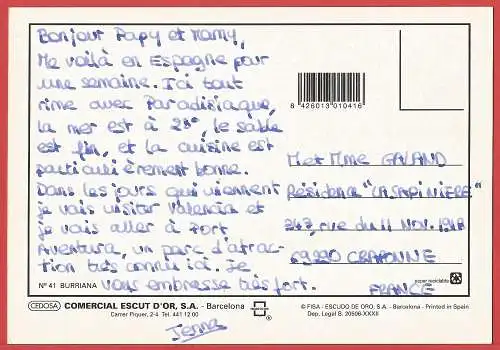 Bonjour Papy et Mamy,
Me voilà en Espagne pour
une semaine. Ici tout
rime avec Paradisiaque,
la mer est à 28°, le sable
est fin, et la cuisine est
particulièrement bonne.
Dans les jours qui viennent
je vais visiter Valencia et
je vais aller à Port
Aventura, un parc d'attrac-
tion très connu ici. Je
vous embrasse très fort.
Jenna
8 426013 010416
M et Mme GALAND
Résidence "LA SAPINIÈRE"
247, rue du 11 Nov. 1918
69290 CRAPONNE
FRANCE
papel reciclable
Nº 41 BURRIANA
CEDOSA COMERCIAL ESCUT D'OR, S.A. - Barcelona
Carrer Piquer, 2-4 Tel. 441 12 00
© FISA - ESCUDO DE ORO, S.A. - Barcelona - Printed in Spain
Dep. Legal B. 20506-XXXII